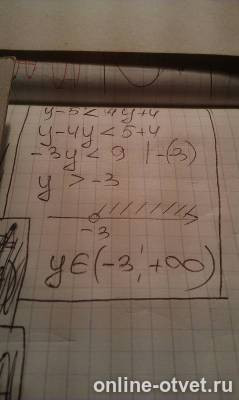 y-5<4y+4
y-4y<5+4
-3y<9 |-(3)
y>-3
-3
y∈(-3;+∞)
online-otvet.ru